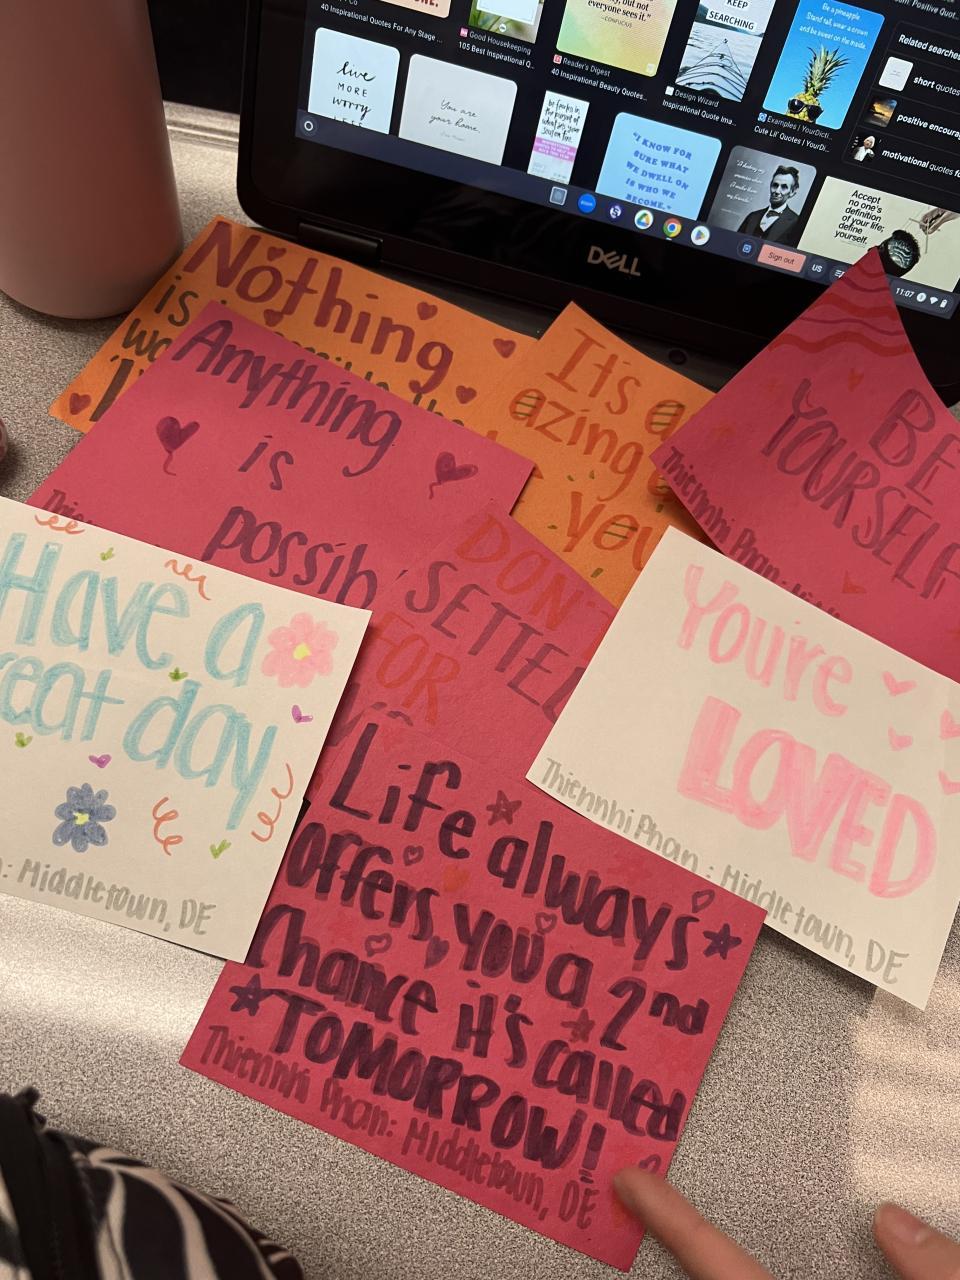 40 Inspirational Quotes For Any Stage ...
Good Housekeeping
105 Best Inspirational Q...
everyone sees it."
-CONFUCIUS
Reader's Digest
40 Inspirational Beauty Quotes...
KEEP
SEARCHING
Design Wizard
Inspirational Quote Ima...
Be a pineapple.
Stand tall, wear a crown
and be sweet on the inside.
Examples | YourDicti...
Cute Lil' Quotes | YourDi...
Related searches
short quotes
positive encourag
motivational quotes fo
live
MORE
worry
LESS
You are
your home.
"I KNOW FOR
SURE WHAT
WE DWELL ON
IS WHO WE
BECOME."
Accept
no one's
definition
of your life;
define
yourself.
Sign out
US
11:07
DELL
Nothing
is
Anything
is
possib
It's a
azing
you
BE
YOURSELF
Thiennhi Phan:
DON'T
SETTEL
FOR
Have a
reat day
: Middletown, DE
You're
LOVED
Thiennhi Phan: Middletown, DE
Life always
offers you a 2nd
Chance it's called
TOMORROW!
Thiennhi Phan: Middletown, DE